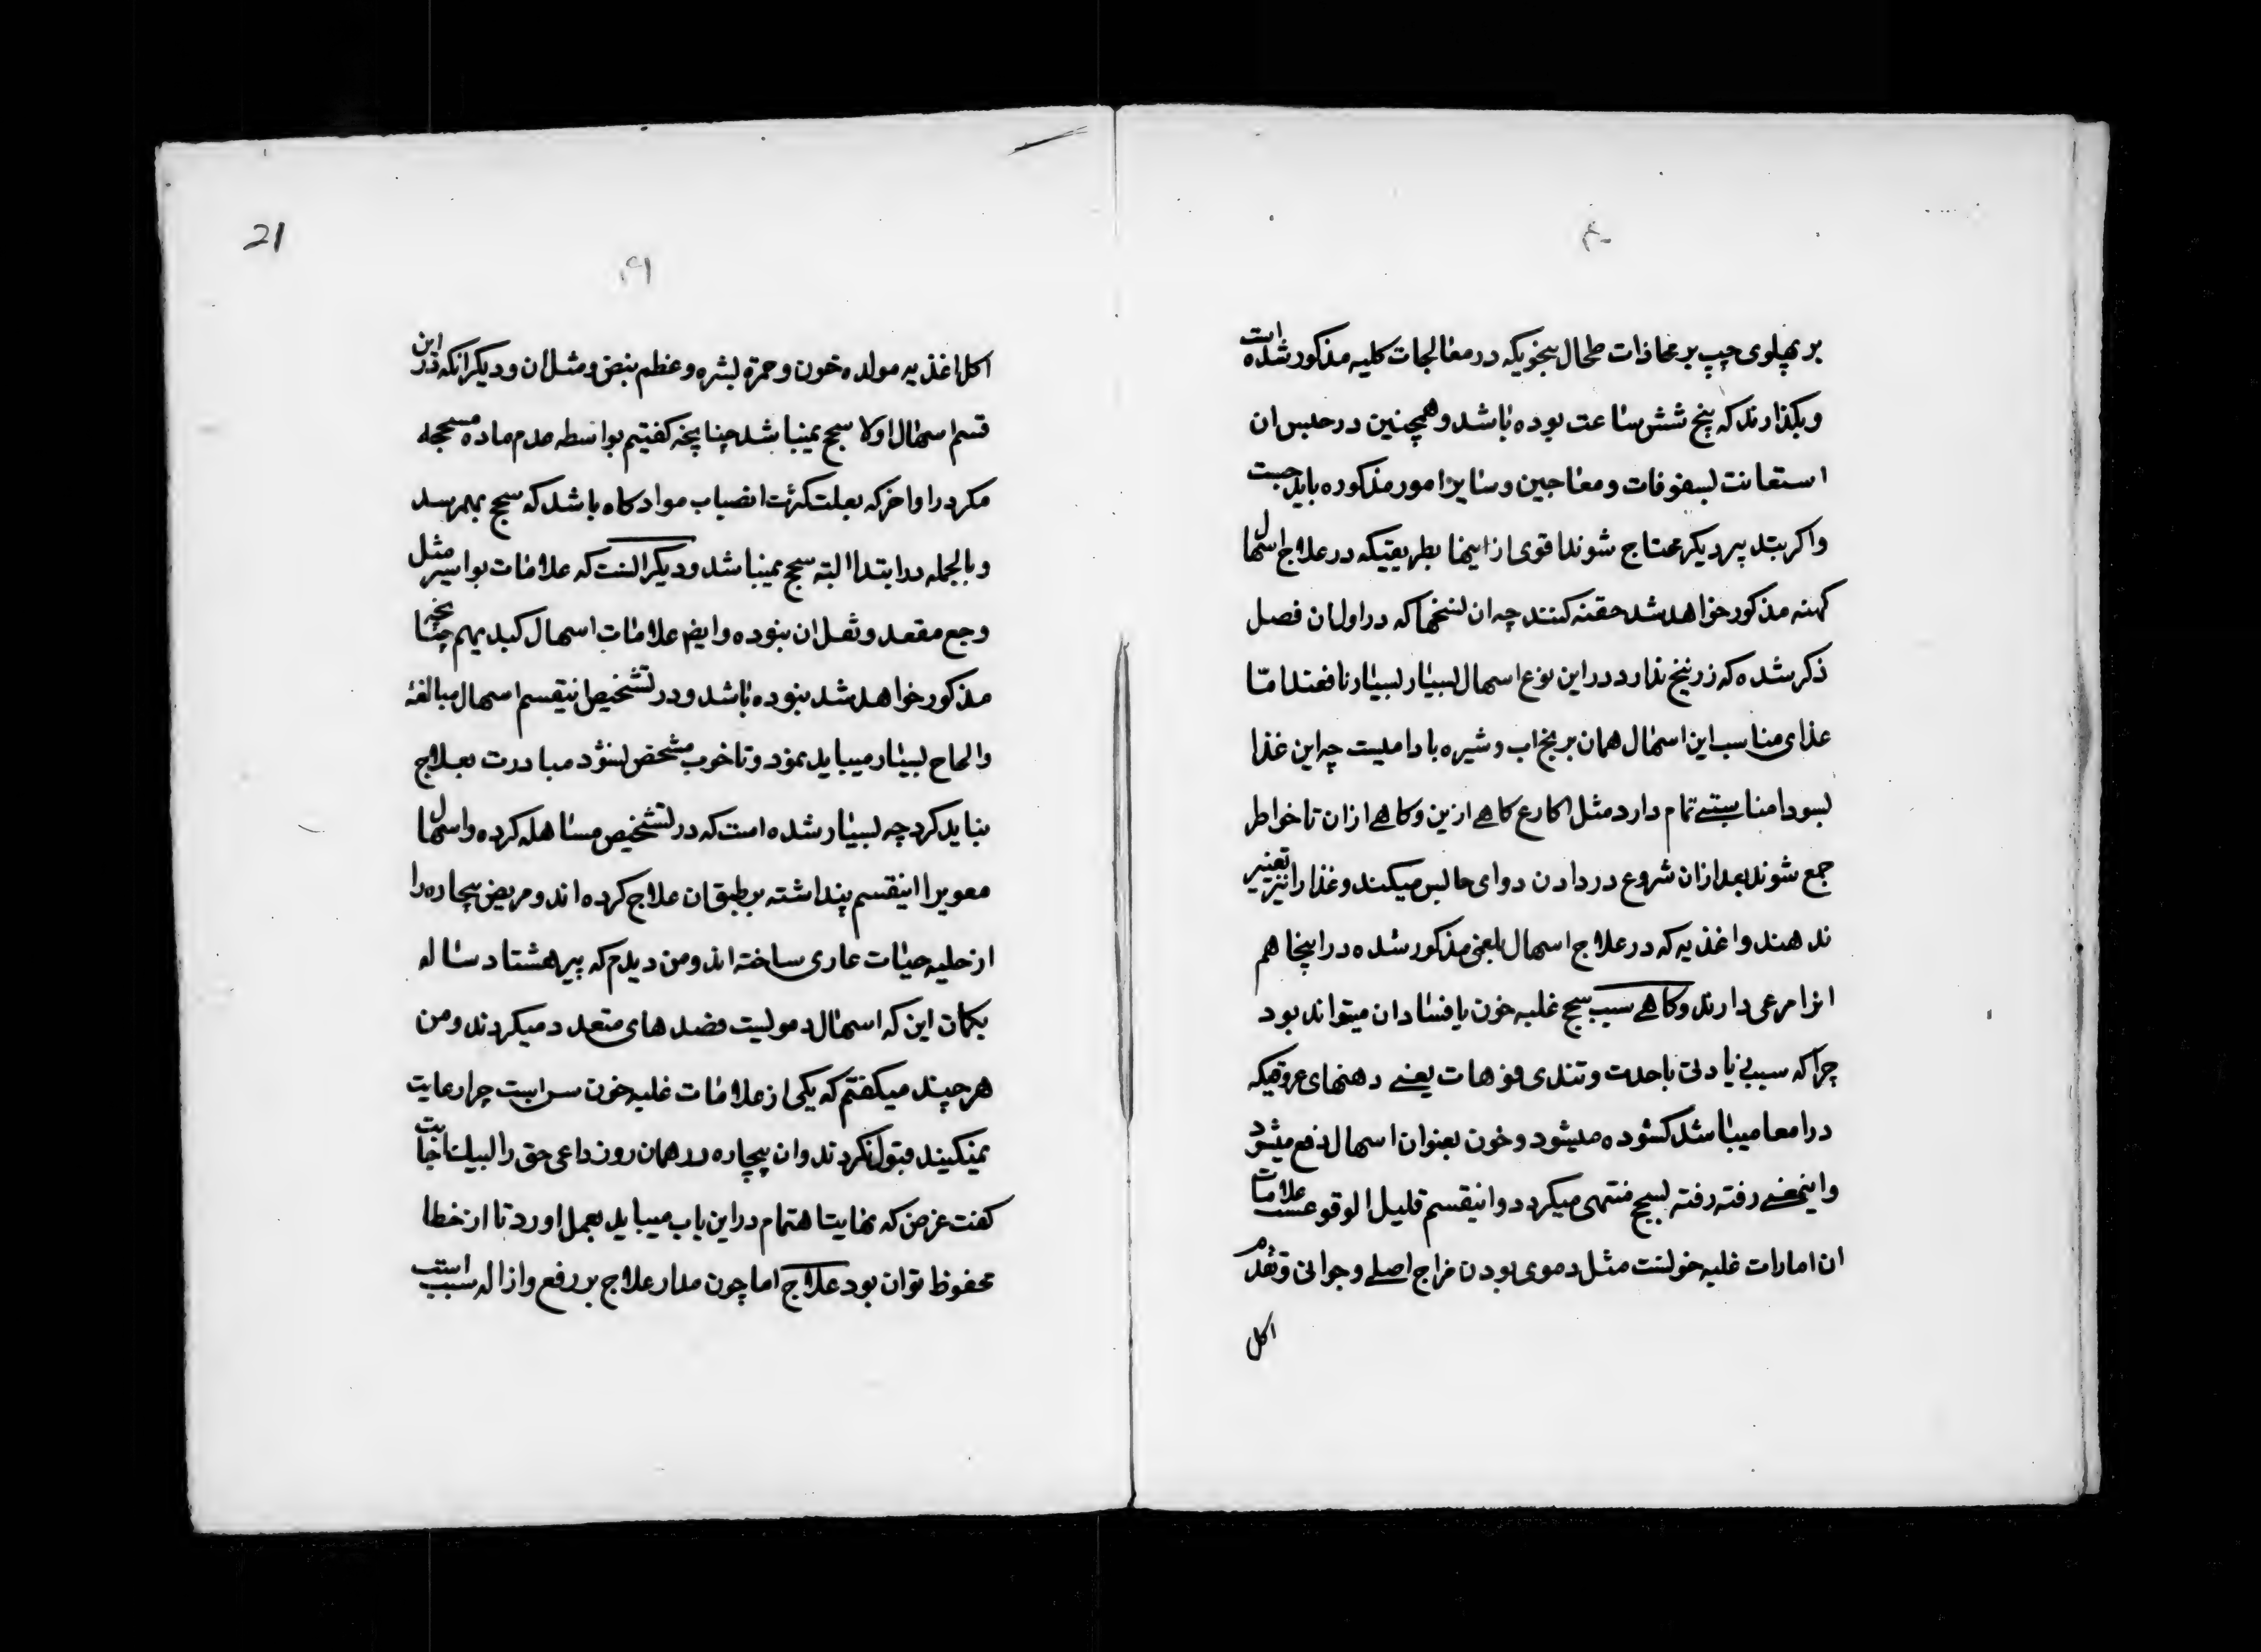 ۴۰
بر پهلوی چپ بر محاذات طحال بنحویکه در معالجات کلیه مذکور شده است
وبکذارند که پنج شش ساعت بوده باشد وهمچنین در حبس ان
استعانت بسفوفات ومعاجین وسایر امور مذکوره باید جست
واکر بتدبیر دیکر محتاج شوند اقوی از اینها بطریقیکه در علاج اسهال
کهنه مذکور خواهد شد حقنه کنند چه ان نسخها که در اول ان فصل
ذکر شده که زرنیخ ندارد در این نوع اسهال بسیار بسیار نافعند اما
غذای مناسب این اسهال همان برنج اب وشیره بادامیست چه این غذا
بسودا مناسبتی تمام دارد مثل اکارع کاهی از ین وکاهی از ان تا خواطر
جمع شوند بعد از ان شروع در دادن دوای حابس میکنند وغذا را نیز تغییر
ندهند واغذیه که در علاج اسهال بلغمی مذکور شده در اینجا هم
انرا مرعی دارند وکاهی سبب سحج غلبه خون یا فساد ان میتواند بود
چرا که بسبب زیادتی یا حدت وتندی فوهات یعنی دهنهای عروقیکه
در امعا میباشد کشوده میشود وخون بعنوان اسهال دفع میشود
واینمعنی رفته رفته بسحج منتهی میکردد واینقسم قلیل الوقوعست علامات
ان امارات غلبه خونست مثل دموی بودن مزاج اصلی وجوانی وتقدم
اکل
21
۴۱
اکل اغذیه مولده خون وحمرة بشره وعظم نبض ومثل ان ودیکر انکه در این
قسم اسهال اولا سحج نمیباشد چنانچه کفتیم بواسطه عدم ماده مسحجه
مکر در اواخر که بعلت کثرت انصباب مواد کاه باشد که سحج بهمرسد
وبالجمله در ابتدا البته سحج نمیباشد ودیکر انست که علامات بواسیر مثل
وجع مقعد وثقل ان نبوده وایضا علامات اسهال کبد بهم چنانچه
مذکور خواهد شد نبوده باشد ودر تشخیص اینقسم اسهال مبالغه
والحاح بسیار میباید نمود وتا خوب مشخص نشود مبادرت بعلاج
نباید کرد چه بسیار شده است که در تشخیص مساهله کرده واسهال
معویرا اینقسم پنداشته بر طبق ان علاج کرده اند ومریض بیچاره را
از حلیه حیات عاری ساخته اند ومن دیدم که پیر هشتاد ساله
بکمان این که اسهال دمویست فصدهای متعدد میکردند ومن
هر چند میکفتم که یکی از علامات غلبه خون سن است چرا رعایت
نمیکنید قبول نکردند وان بیچاره در همان روز داعی حق را لبیك اجابت
کفت غرض که نهایت اهتمام در این باب میباید بعمل اورد تا از خطا
محفوظ توان بود علاج اما چون مدار علاج بر رفع وازاله سبب است